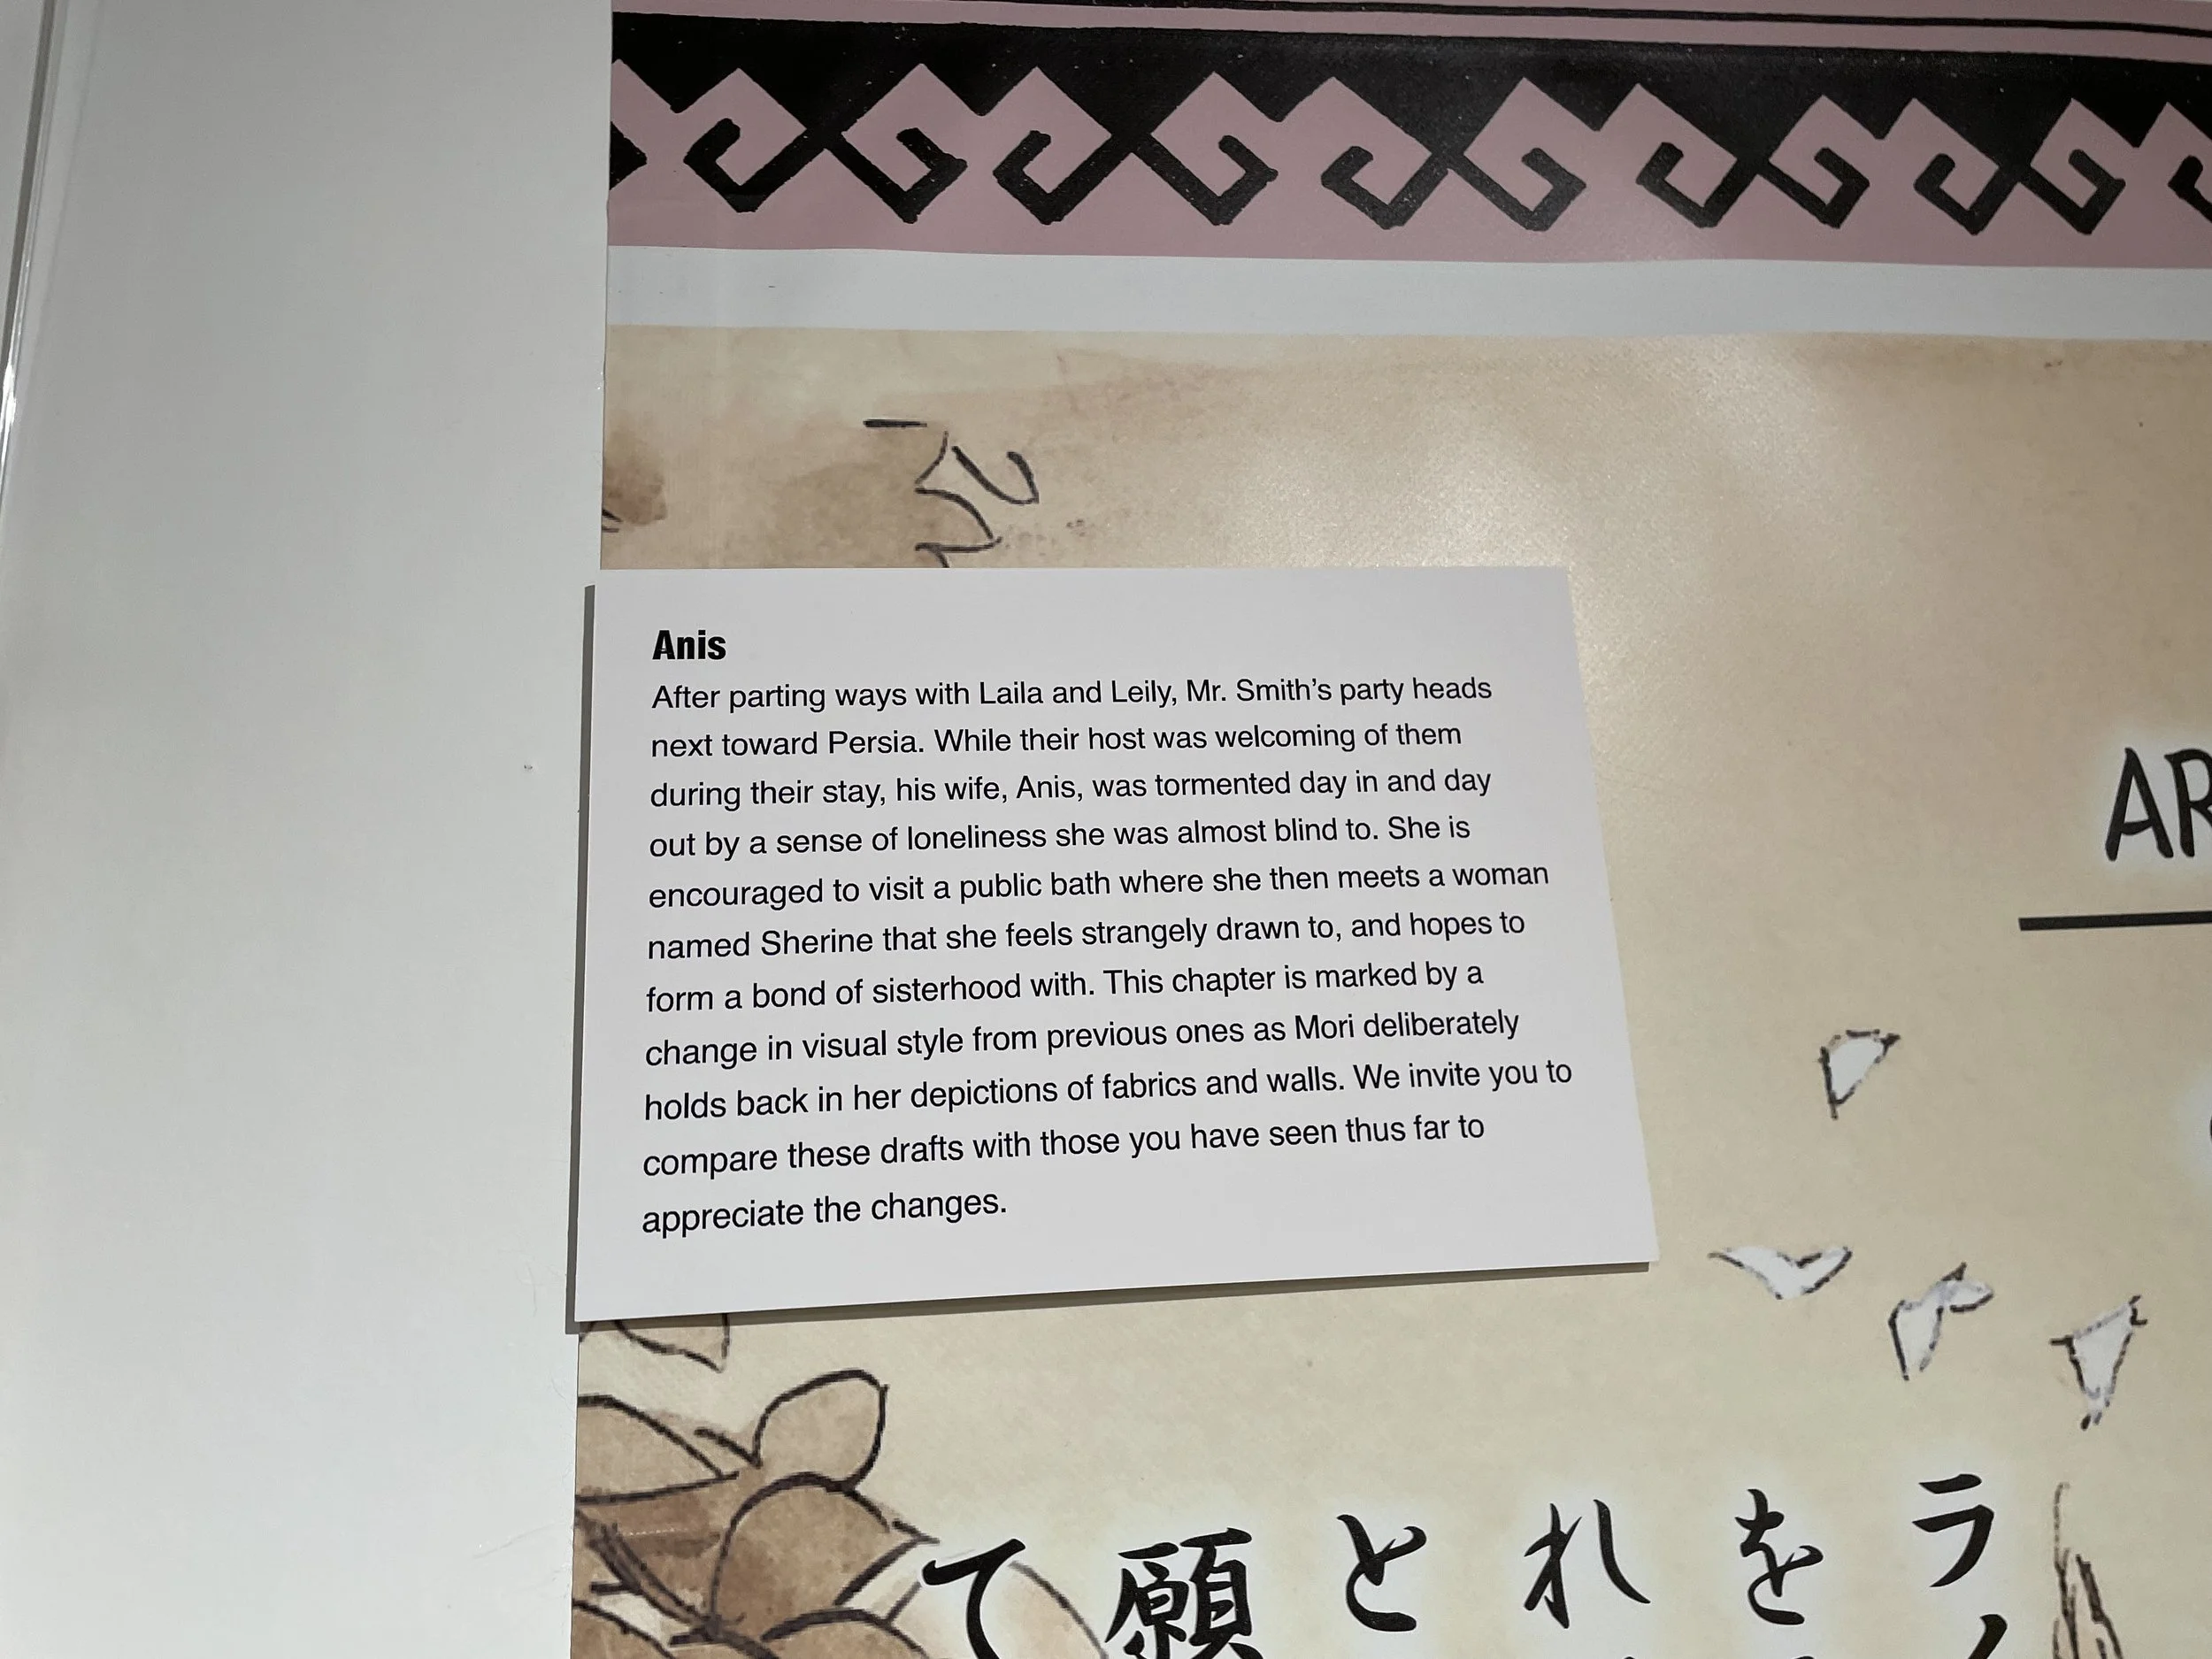 Anis
After parting ways with Laila and Leily, Mr. Smith's party heads
next toward Persia. While their host was welcoming of them
during their stay, his wife, Anis, was tormented day in and day
out by a sense of loneliness she was almost blind to. She is
encouraged to visit a public bath where she then meets a woman
named Sherine that she feels strangely drawn to, and hopes to
form a bond of sisterhood with. This chapter is marked by a
change in visual style from previous ones as Mori deliberately
holds back in her depictions of fabrics and walls. We invite you to
compare these drafts with those you have seen thus far to
appreciate the changes.
AR
ラ
を
れ
と
願
て